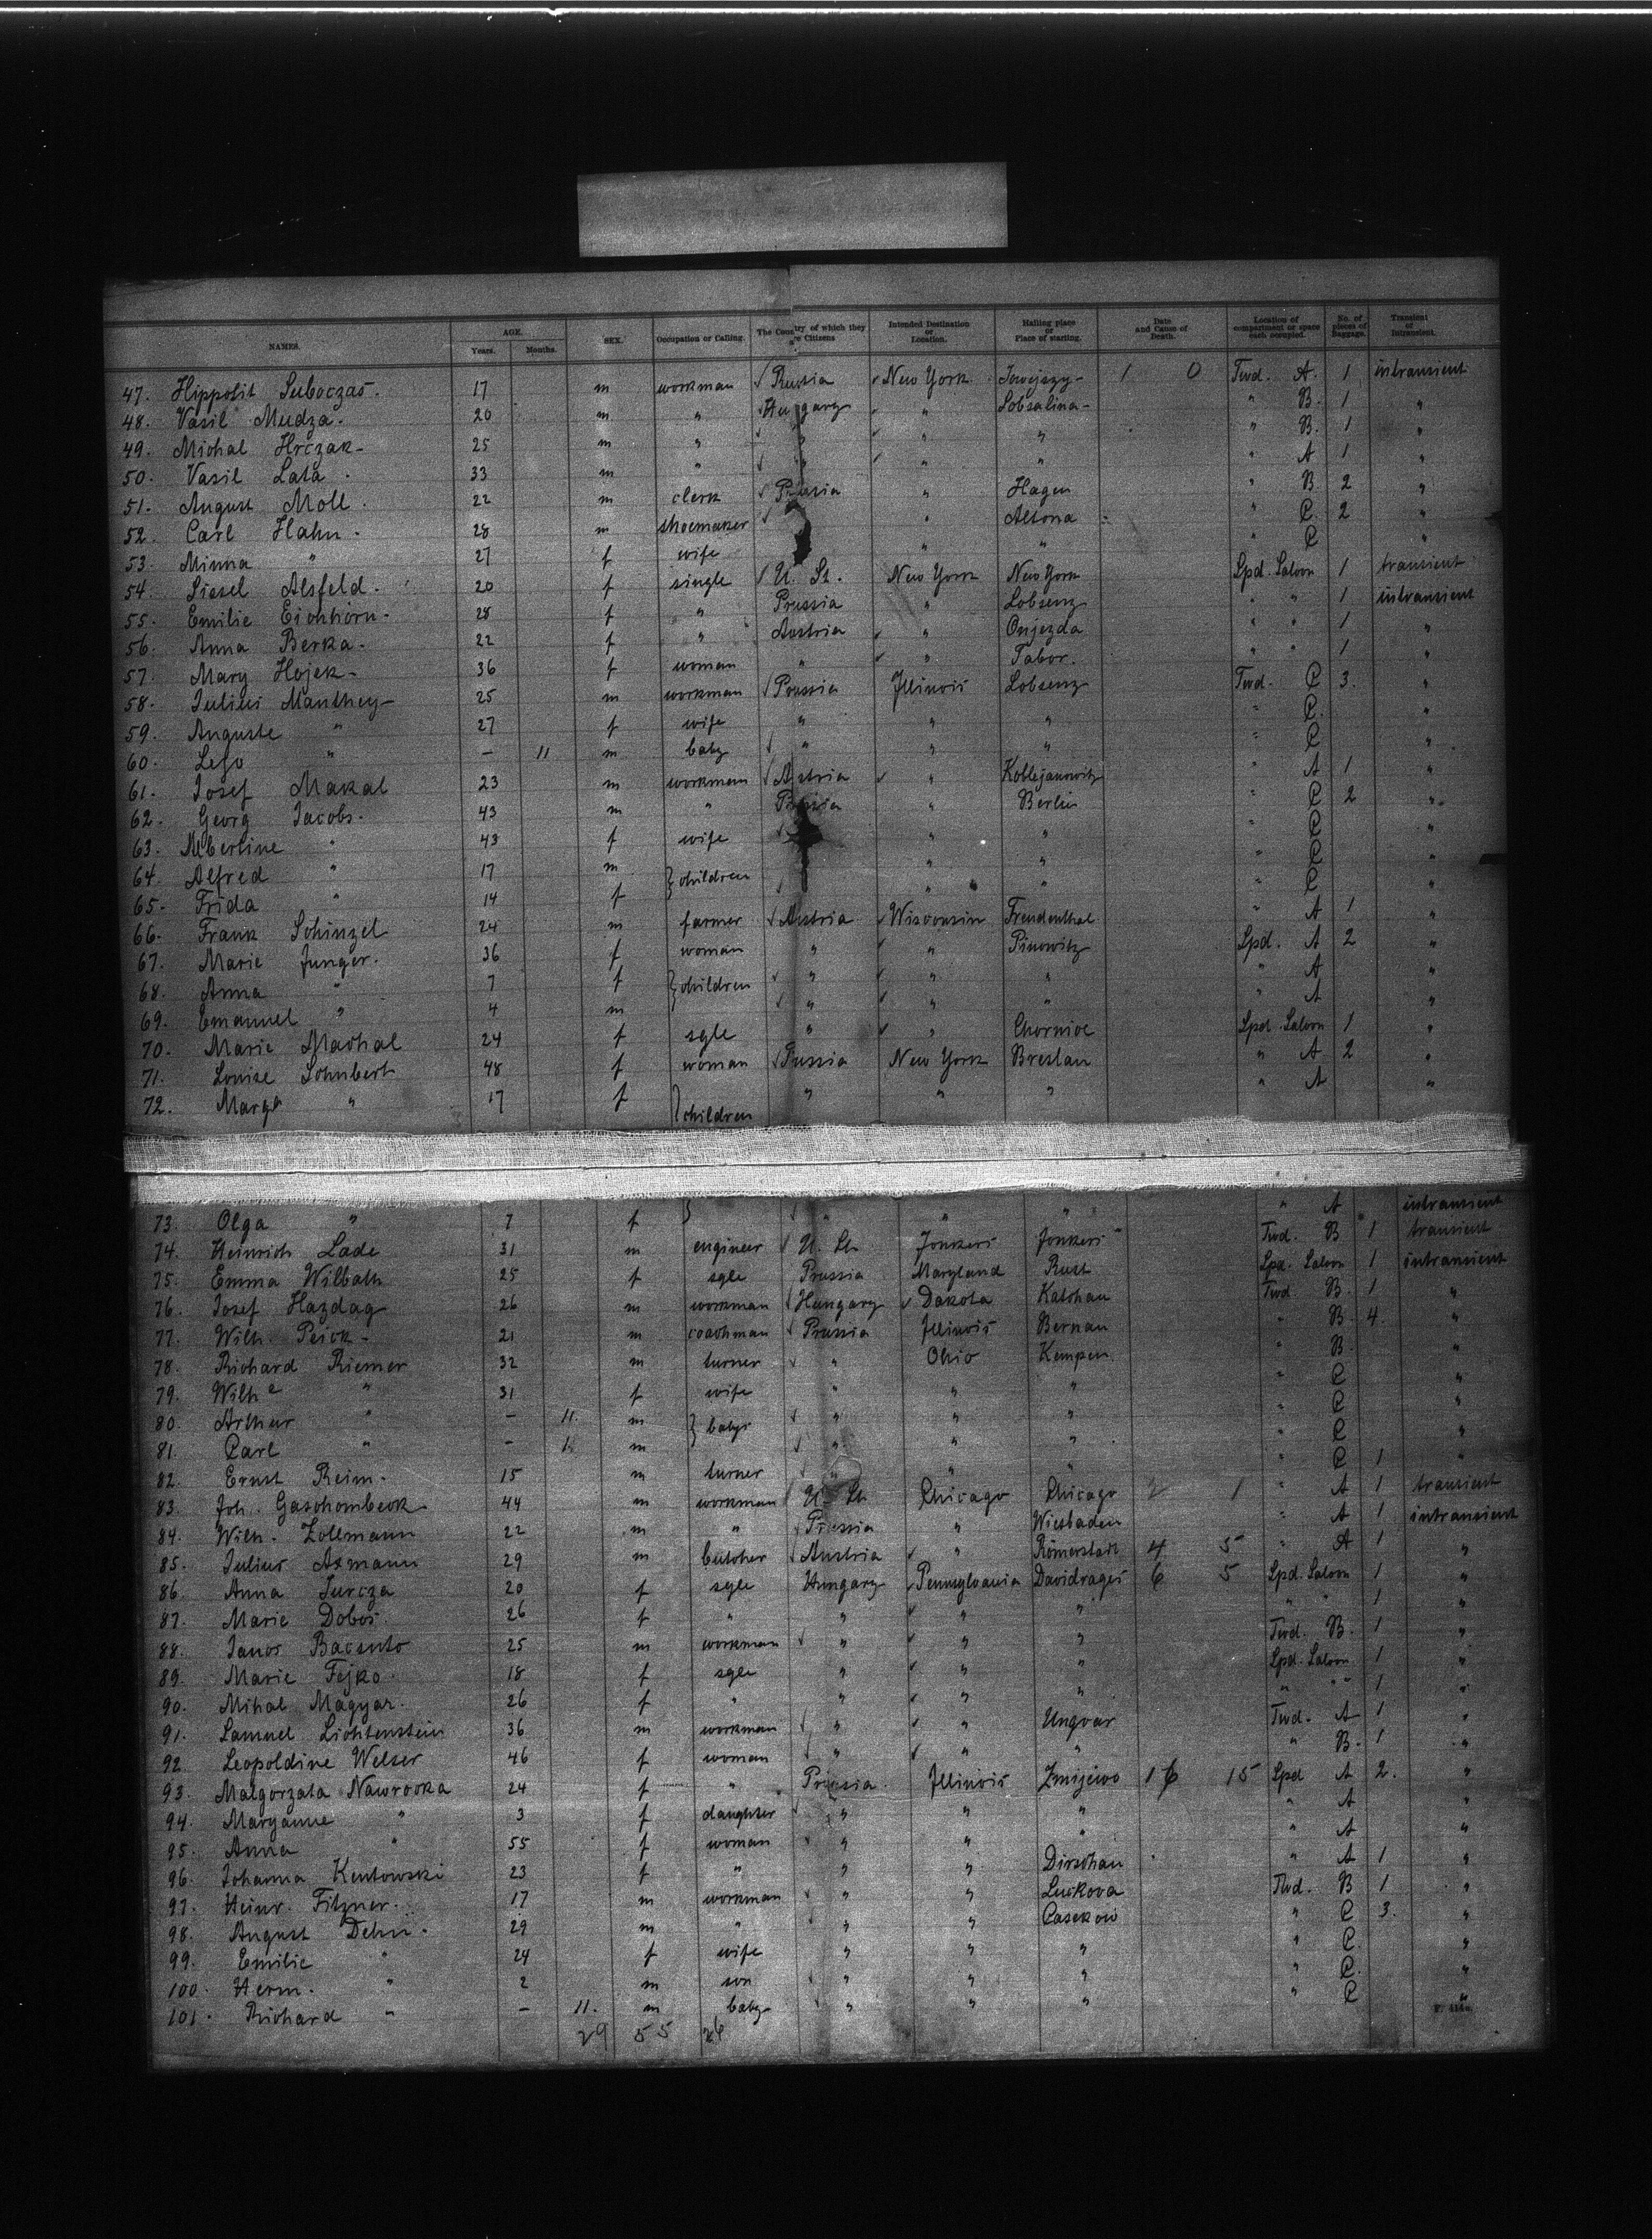 NAMES. AGE. Years. Months. SEX. Occupation or Calling. The Country of which they are Citizens Intended Destination or Location. Hailing place or Place of starting. Date and Cause of Death. Location of compartment or space each occupied. No. of pieces of Baggage. Transient or Intransient.
47. Hippolit Suboczas 17 m workman Russia New York 1 0 Twd. A. 1 intransient
48. Vasil Mudza 20 m " Hungary " Lobsalina B. 1 "
49. Michal Hrczak 25 m " " " " " B. 1 "
50. Vasil Lata 33 m " " " " " A 1 "
51. August Moll 22 m clerk Prussia " Hagen " B 2 "
52. Carl Hahn 28 m shoemaker " Altona " C. 2 "
53. Minna " 27 f wife " " " C "
54. Siesel Alsfeld 20 f single U. St. New York New York Spd. Saloon 1 transient
55. Emilie Eichhorn 28 f " Prussia " Lobsenz " " 1 intransient
56. Anna Berka 22 f " Austria " Onjezda " " 1 "
57. Mary Hojek 36 f woman " " Tabor. " " 1 "
58. Julius Manthey 25 m workman Prussia Illinois Lobsenz Twd. C 3. "
59. Auguste " 27 f wife " " " " C. "
60. Leo " – 11 m baby " " " " C "
61. Josef Makal 23 m workman Austria " " A 1 "
62. Georg Jacobs 43 m " Prussia " Berlin " C 2 "
63. Alberline " 43 f wife " " " C "
64. Alfred " 17 m children " " " C "
65. Frida " 14 f " " " C "
66. Frank Schinzel 24 m farmer Austria Wisconsin Freudenthal " A 1 "
67. Marie Junger 36 f woman " " Pinowitz Spd. A 2 "
68. Anna " 7 f children " " " " A "
69. Emanuel " 4 m " " " " A "
70. Marie Machal 24 f sgle " " Chornice Spd. Saloon 1 "
71. Louise Schubert 48 f woman Prussia New York Breslau " A 2 "
72. Marga " 17 f children " " " " A "
73. Olga " 7 f " " " " A intransient
74. Heinrich Lade 31 m engineer U. St. Jonkers Jonkers Twd. B 1 transient
75. Emma Wilbath 25 f sgle Prussia Maryland Rust Spd. Saloon 1 intransient
76. Josef Hazdag 26 m workman Hungary Dakota Kalshau Twd. B. 1 "
77. Wilh. Peick 21 m coachman Prussia Illinois Bernau " B 4. "
78. Richard Riemer 32 m turner " Ohio Kempen " B. "
79. Wilh e " 31 f wife " " " " C "
80. Arthur " – 11. m babys " " " " C "
81. Carl " – m " " " " C "
82. Ernst Reim 15 m turner " " " " C 1 "
83. Joh. Gaschombeck 44 m workman U. St. Chicago Chicago 2 1 " A 1 transient
84. Wilh. Zollmann 22 m " Prussia " Wiesbaden " A 1 intransient
85. Julius Axmann 29 m butcher Austria " Römerstadt 4 5 " A 1 "
86. Anna Jurcza 20 f sgle Hungary Pennsylvania Davidrages 6 5 Spd. Saloon 1 "
87. Marie Dobos 26 f " " " " " " 1 "
88. Janos Bacsuto 25 m workman " " " Twd. B. 1 "
89. Marie Fejko 18 f sgle " " " Spd. Saloon 1 "
90. Mihal Magyar 26 f " " " " " " 1 "
91. Samuel Lichtenstein 36 m workman " " Ungvar Twd. A 1 "
92. Leopoldine Welser 46 f woman " " " " B. 1 "
93. Malgorzata Nawrocka 24 f " Prussia Illinois Zmijewo 16 15 Spd A 2. "
94. Maryanne " 3 f daughter " " " " A "
95. Anna " 55 f woman " " " " A "
96. Johanna Kentowski 23 f " " " Dirschau " A 1 "
97. Heinr. Fitzner 17 m workman " " Luckova Twd. B 1 "
98. August Dehn 29 m " " " Casekow " C 3. "
99. Emilie " 24 f wife " " " " C. "
100. Herm. " 2 m son " " " " C. "
101. Richard " – 11. m baby " " " " C "
29 55 26